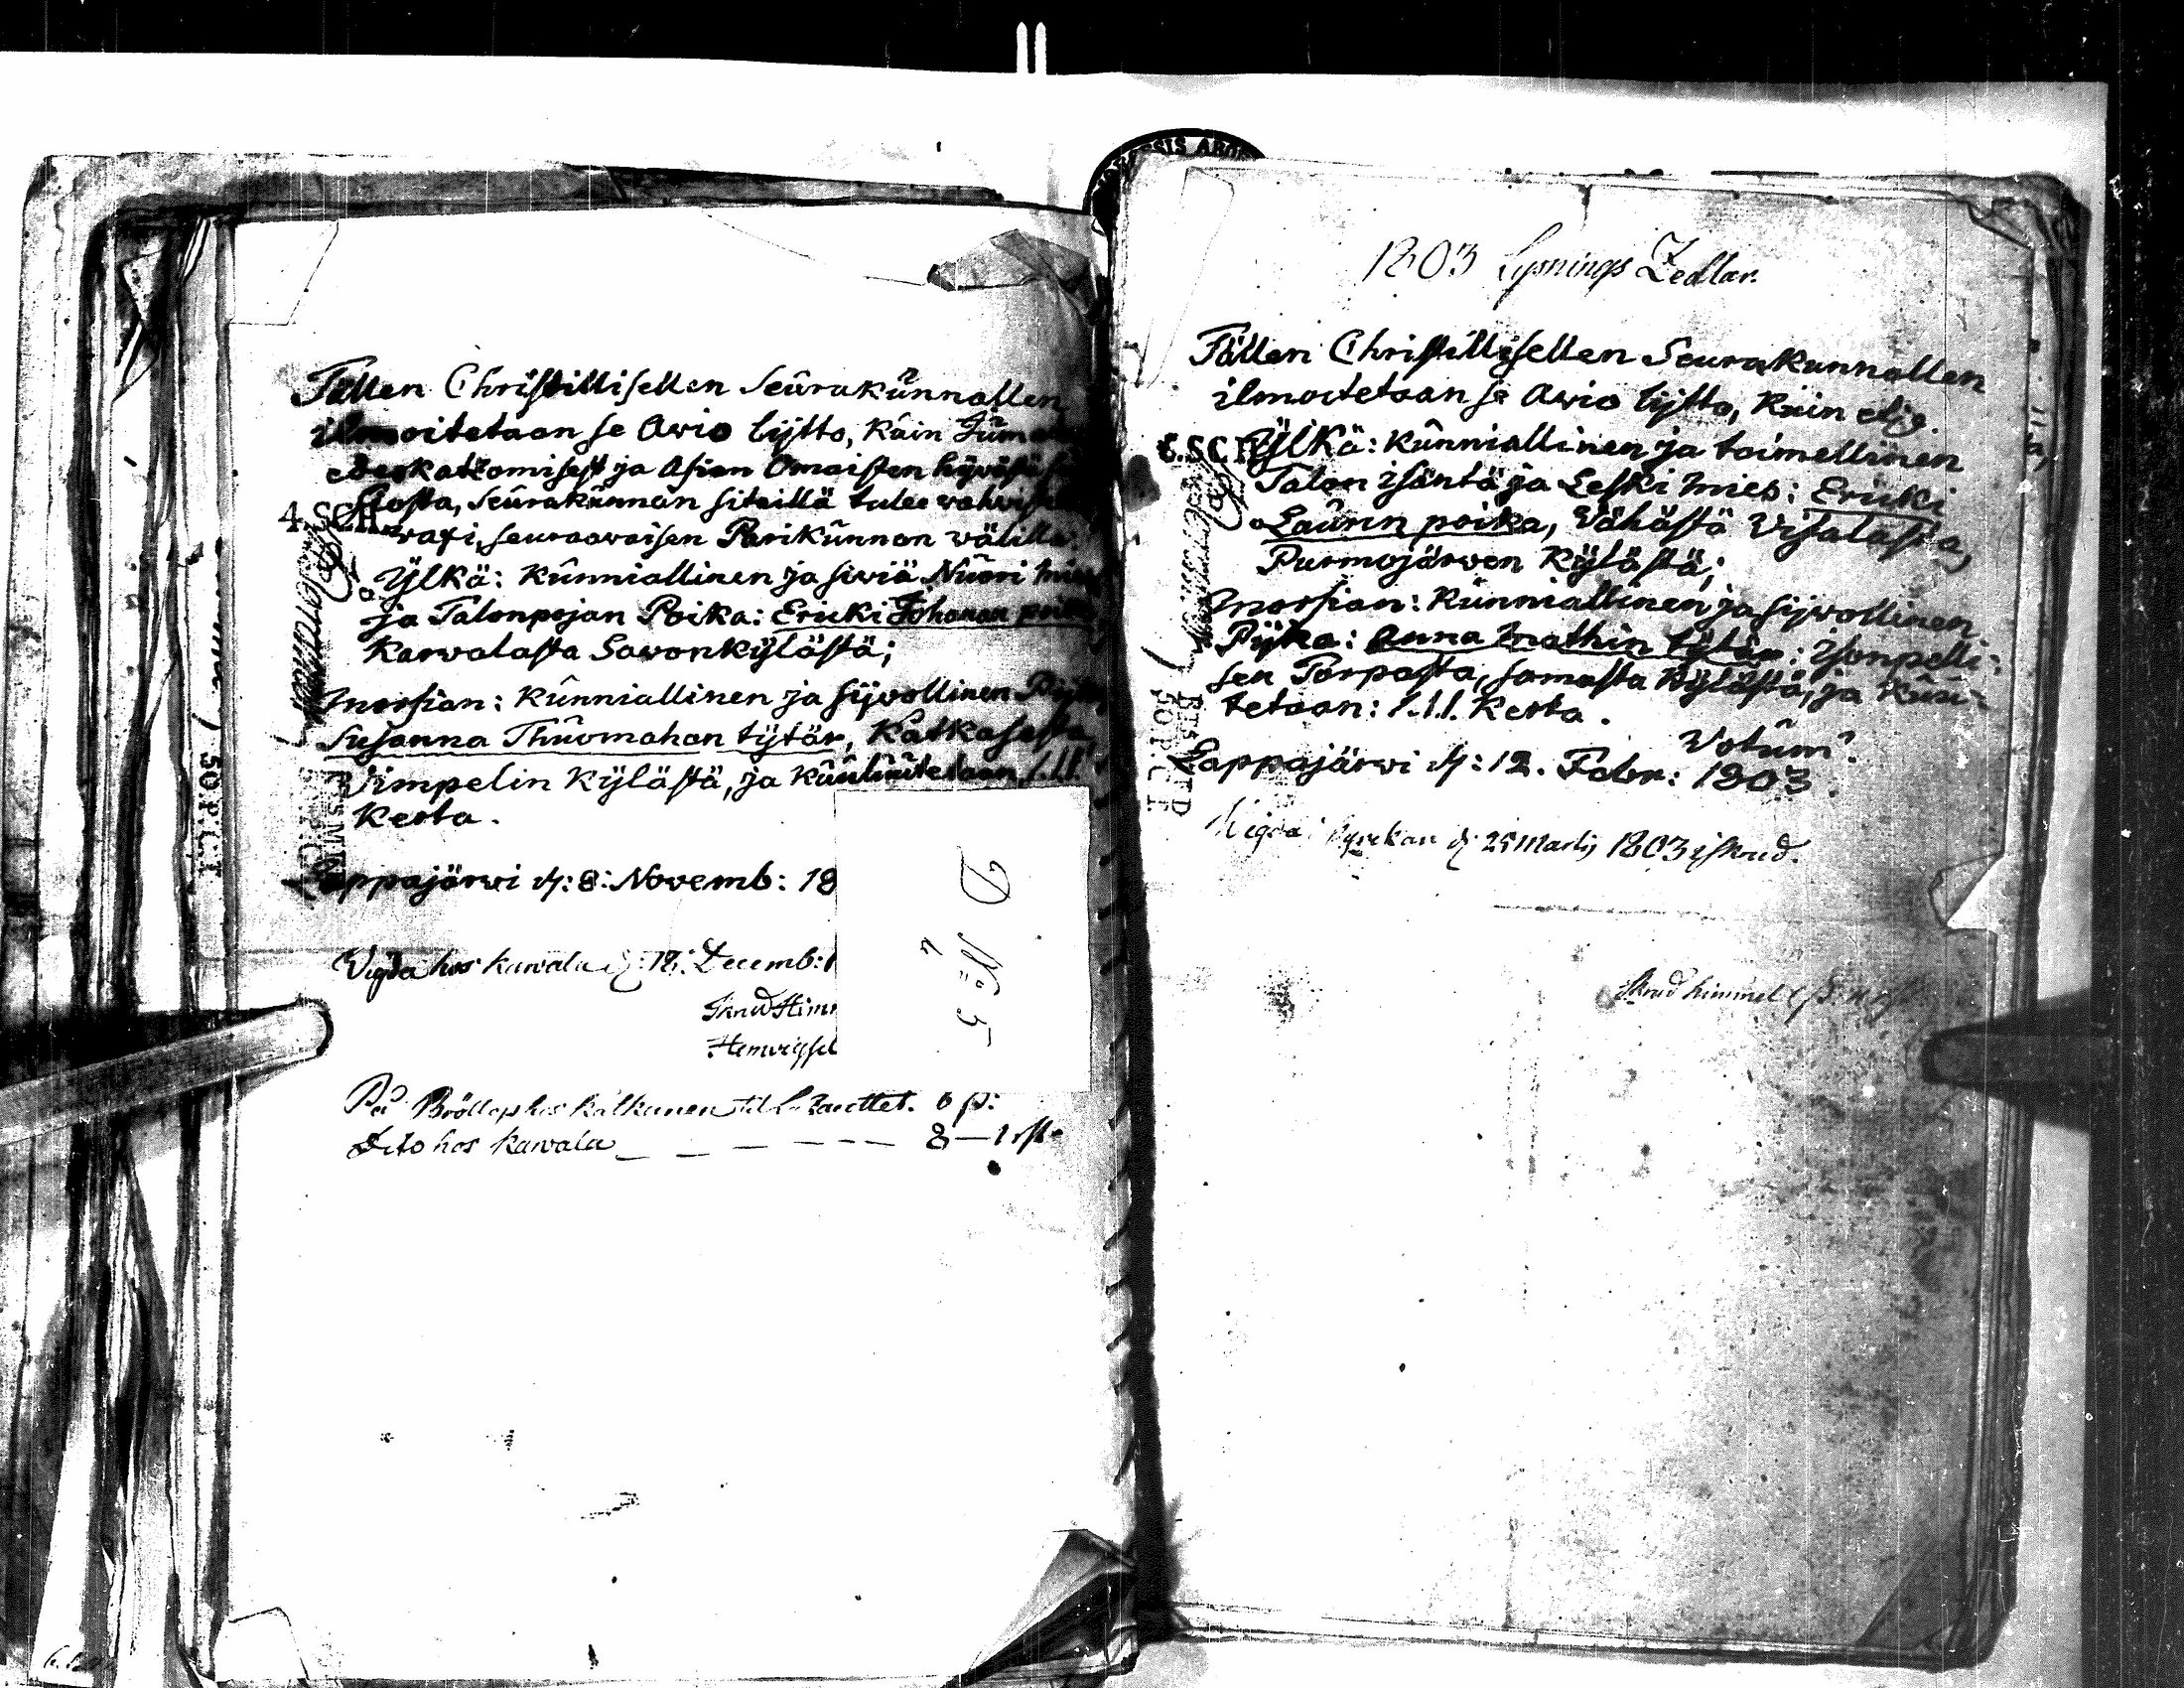 Tällen Christillisellen Seurakûnnallen
ilmoitetaan se Awio lijtto, Kuin Jûm
edeskatzomisest ja Asian Omaisten hywäst
Seûrakûnnan siteillä tulee
waxi, seuraawaisen Parikûnnan wälillä
Ÿlkä: Kûnniallinen ja siwiä Nûori Mies
ja Talonpojan Poika: Ericki Johanan poika
Karwalasta Sawonkÿlästä;
Morsian: Kûnniallinen ja sijwollinen Pijka
Susanna Thûomahan tÿtär, Katkasesta
Vimpelin Kÿlästä, ja Kûulûtetaan 1.1.1.
Kerta.
Lappajärwi d: 8: Novemb: 18
Vigda hos Karvala d: 18: Decemb: 1
Skrud Him
Hemvigsel
På Bröllop hos Katkanen til Lazarettet. 6 p:
Dito hos Karvala 8 — 1 rst
D
N:o 5
1803 Lysnings Zedlar.
Tällen Christillisellen Seurakunnallen
ilmoitetaan se Awio lijtto, Kuin etc.
Ÿlkä: Kûnniallinen ja toimellinen
Talon isäntä ja Leski Mies: Ericki
Laûrin poika, Wähästä Visalasta,
Purmojärwen Kÿlästä;
Morsian: Kûnniallinen ja sijwollinen
Pijka: Anna Mathin tÿtär: Isonpelli-
sen Torpasta, samasta Kÿlästä, ja Kûu-
tetaan: 1.1.1. Kerta.
Votûm
Lappajärwi d: 12. Febr: 1803.
Vigda i Kyrckan d: 25 Martij 1803 i skrud.
Skrud himmel